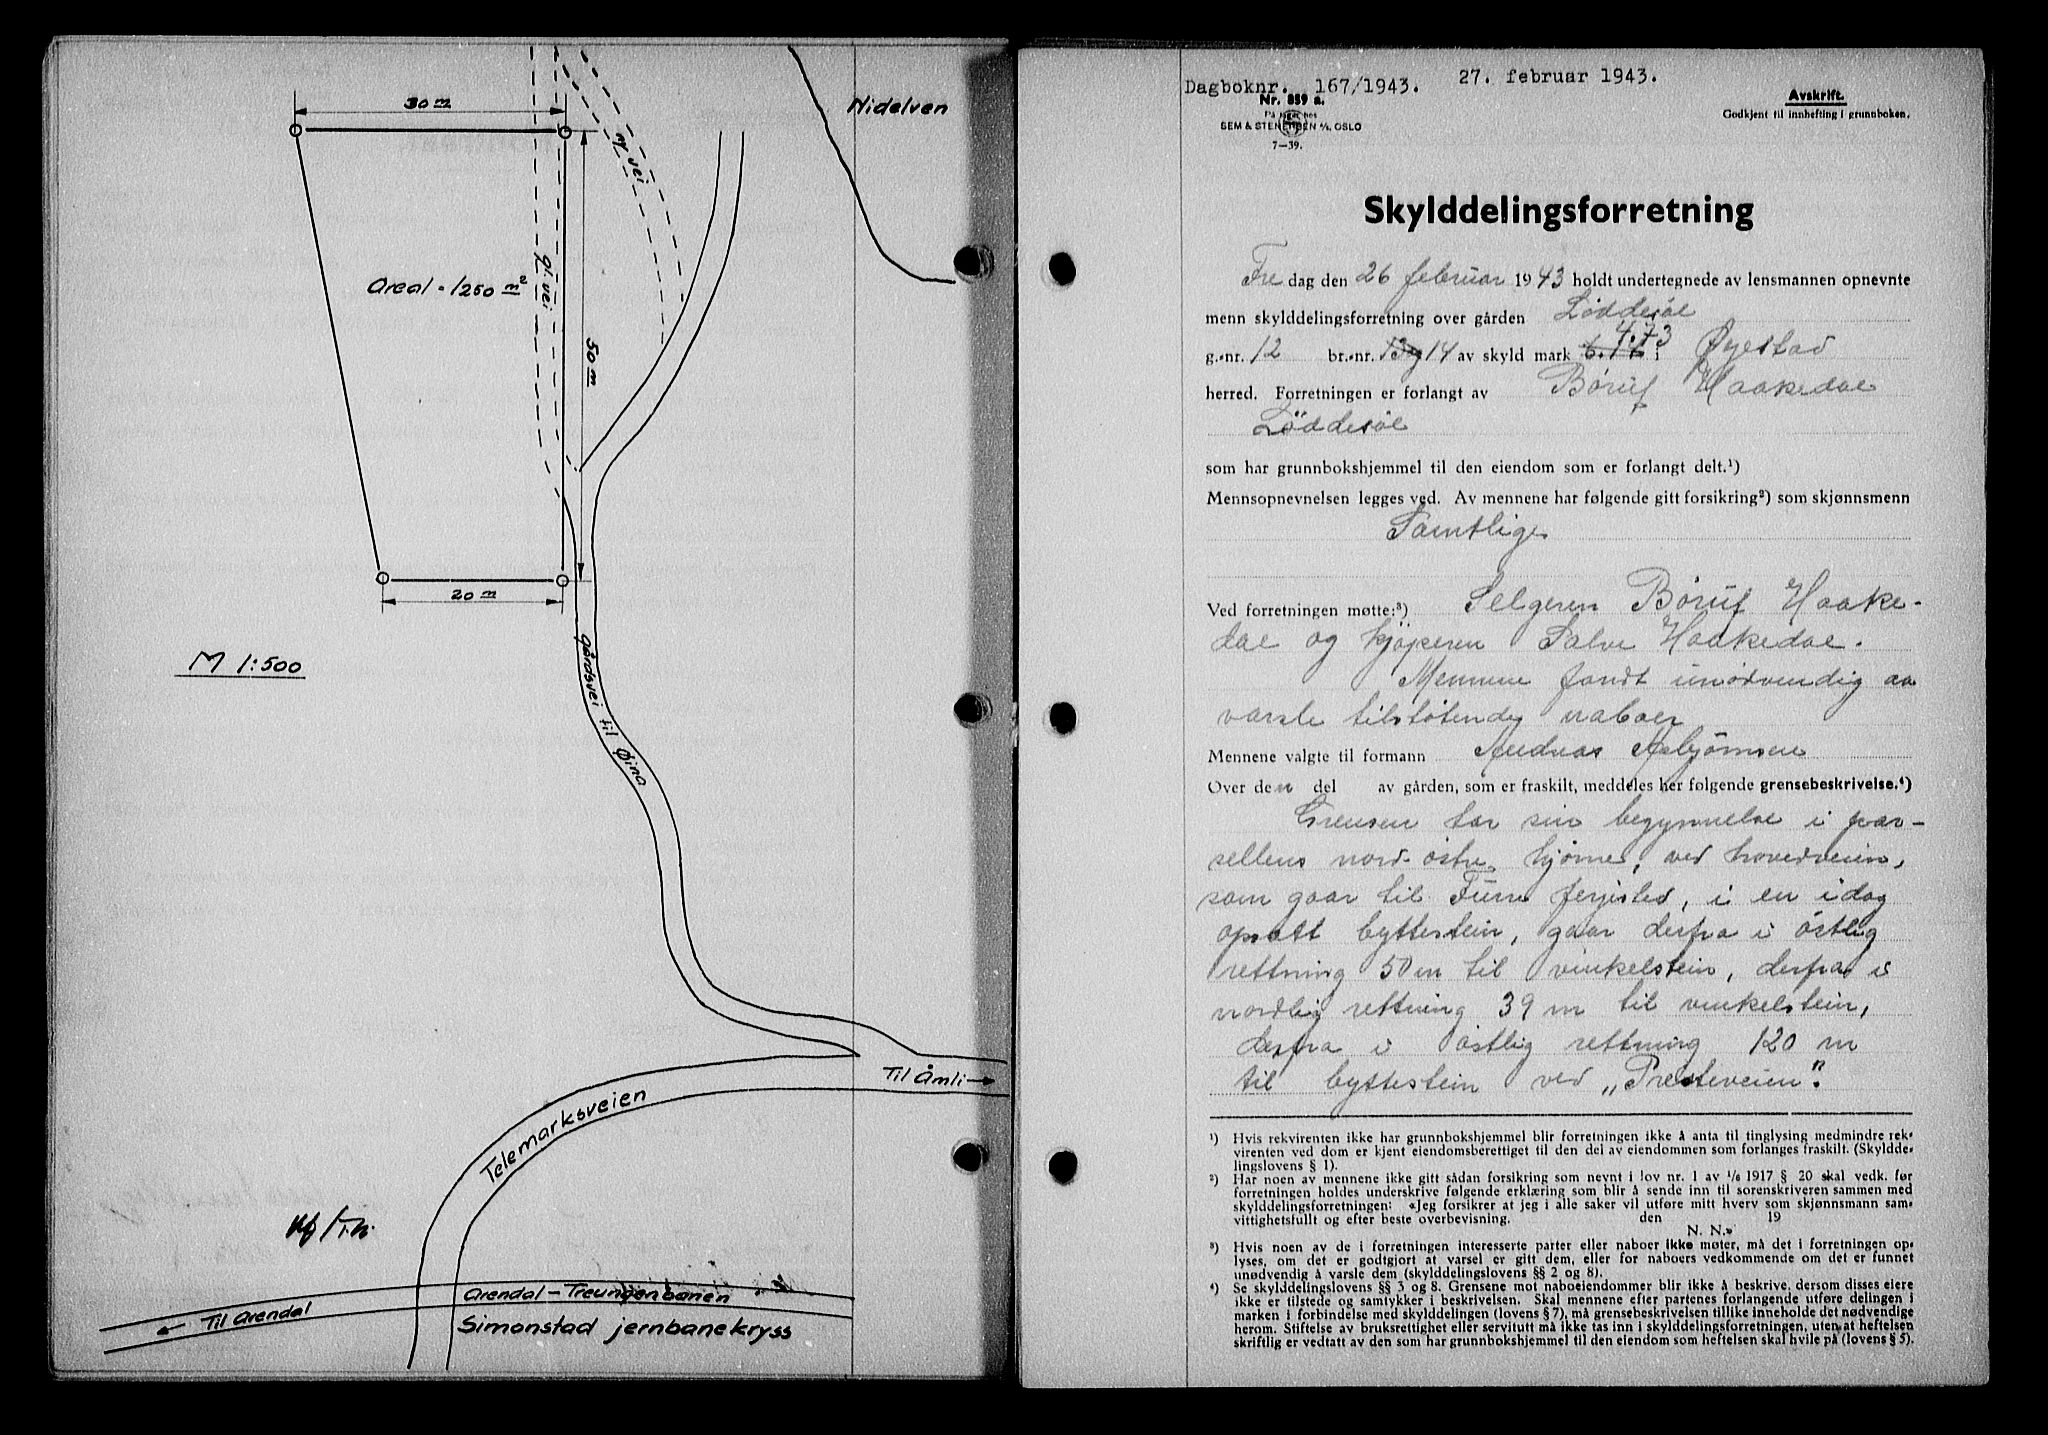 30 m
Nidelven
ny vei
gl. vei
Areal = 1250 m²
50 m
20 m
M 1:500
gårdsvei til Øina
Til Åmli →
Telemarksveien
Arendal - Treungenbanen
← Til Arendal
Simonstad jernbanekryss
Dagboknr. 167/1943. 27. februar 1943.
Nr. 859 a.
På lager hos
SEM & STENERSEN A/S, OSLO
7—39.
Avskrift.
Godkjent til innhefting i grunnboken.
Skylddelingsforretning
Fre dag den 26 februar 1943 holdt undertegnede av lensmannen opnevnte
menn skylddelingsforretning over gården Løddesøl
g.-nr. 12 br.-nr. 13 og 14 av skyld mark 4.73 i Øyestad
herred. Forretningen er forlangt av Børuf Haakedal
Løddesøl
som har grunnbokshjemmel til den eiendom som er forlangt delt.¹)
Mennsopnevnelsen legges ved. Av mennene har følgende gitt forsikring²) som skjønnsmenn
Samtlige
Ved forretningen møtte:³) Selgeren Børuf Haake-
dal og kjøperen Salve Haakedal.
Mennene fandt unødvendig aa
varsle tilstøtende naboer
Mennene valgte til formann Andreas Asbjørnsen
Over den del av gården, som er fraskilt, meddeles her følgende grensebeskrivelse.⁴)
Grensen tar sin begynnelse i par-
sellens nord-østre hjørne, ved hovedveien,
som gaar til Furre ferjested, i en idag
opsatt byttestein, gaar derfra i østlig
rettning 50 m til vinkelstein, derfra i
nordlig rettning 39 m til vinkelstein,
derfra i østlig rettning 120 m
til byttestein ved „Presteveien".
¹) Hvis rekvirenten ikke har grunnbokshjemmel blir forretningen ikke å anta til tinglysing medmindre rek-
virenten ved dom er kjent eiendomsberettiget til den del av eiendommen som forlanges fraskilt. (Skyldde-
lingslovens § 1).
²) Har noen av mennene ikke gitt sådan forsikring som nevnt i lov nr. 1 av ¹/₆ 1917 § 20 skal vedk. før
forretningen holdes underskrive følgende erklæring som blir å sende inn til sorenskriveren sammen med
skylddelingsforretningen: «Jeg forsikrer at jeg i alle saker vil utføre mitt hverv som skjønnsmann sam-
vittighetsfullt og efter beste overbevisning. den 19
N. N.»
³) Hvis noen av de i forretningen interesserte parter eller naboer ikke møter, må det i forretningen op-
lyses, om det er godtgjort at varsel er gitt dem, eller for naboers vedkommende om det er funnet
unødvendig å varsle dem (skylddelingslovens §§ 2 og 8).
⁴) Se skylddelingslovens §§ 3 og 8. Grensene mot naboeiendommer blir ikke å beskrive, dersom disses eiere
ikke er tilstede og samtykker i beskrivelsen. Skal mennene efter partenes forlangende utføre delingen i
marken i forbindelse med skylddelingen (lovens § 7), må grensebeskrivelsen tillike inneholde det nødvendige
herom. Stiftelse av bruksrettighet eller servitutt må ikke tas inn i skylddelingsforretningen, uten at heftelsen
skriftlig er vedtatt av den som har grunnbokshjemmel til den eiendom som heftelsen skal hvile på (lovens § 5).